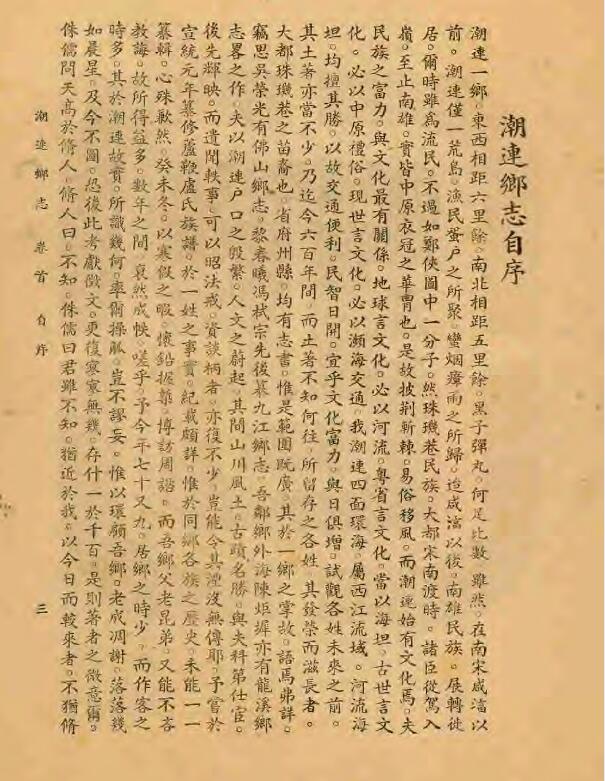 潮連鄉志自序
潮連一鄉。東西相距六里餘。南北相距五里餘。黑子彈丸。何足比數。雖然。在南宋咸淳以
前。潮連僅一荒島。漁民蜑户之所聚。蠻烟瘴雨之所歸。迨咸淳以後。南雄民族。展轉徙
居。爾時雖為流民。不過如鄭俠圖中一分子。然珠璣巷民族。大都宋南渡時。諸臣從駕入
嶺。至止南雄。實皆中原衣冠之華胄也。是故披荆斬棘。易俗移風。而潮連始有文化焉。夫
民族之富力。與文化最有關係。地球言文化。必以河流。粤省言文化。當以海坦。古世言文
化。必以中原禮俗。現世言文化。必以瀕海交通。我潮連四面環海。屬西江流域。河流海
坦。均擅其勝。以故交通便利。民智日開。宜乎文化富力。與日俱增。試觀各姓未來之前。
其土著亦當不少。乃迄今六百年間。而土著不知何往。所留存之各姓。其發榮而滋長者。
大都珠璣巷之苗裔也。省府州縣。均有志書。惟是範圍既廣。其於一鄉之掌故。語焉弗詳。
竊思吳榮光有佛山鄉志。黎春曦馮栻宗先後纂九江鄉志。吾鄰鄉外海陳炬墀亦有龍溪鄉
志畧之作。夫以潮連户口之殷繁。人文之蔚起。其間山川風土。古蹟名勝。與夫科第仕宦。
後先輝映。而遺聞軼事。可以昭法戒。資談柄者。亦復不少。豈能令其湮沒無傳耶。予嘗於
宣統元年纂修蘆鞭盧氏族譜。於一姓之事實。紀載頗詳。惟於同鄉各族之歷史。未能一一
纂輯。心殊歉然。癸未冬。以寒假之暇。懷鉛握槧。博訪周諮。而吾鄉父老昆弟。又能不吝
教誨。故所得益多。數年之間。裒然成帙。嗟乎。予今年七十又九。居鄉之時少。而作客之
時多。其於潮連故實。所識幾何。率爾操觚。豈不謬妄。惟以環顧吾鄉。老成凋謝。落落幾
如晨星。及今不圖。恐後此考獻徵文。更復寥寥無幾。存什一於千百。是則著者之微意爾。
侏儒問天高於脩人。脩人曰。不知。侏儒曰。君雖不知。猶近於我。以今日而較來者。不猶脩
潮連鄉志 卷首 自序 三